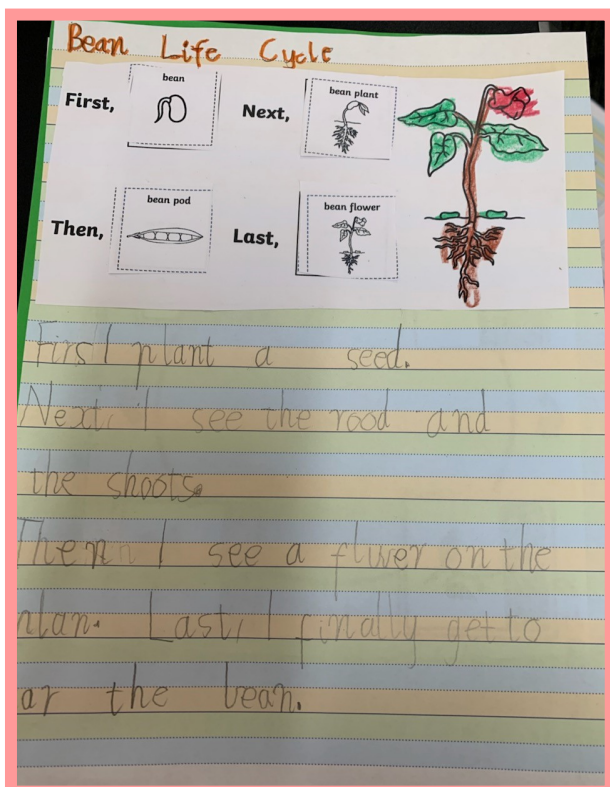 Bean Life Cycle
First, bean Next, bean plant
Then, bean pod Last, bean flower
Firs I plant a seed.
Next, I see the rood and
the shoots.
Then I see a flwer on the
plan. Last, I finally get to
the bean.